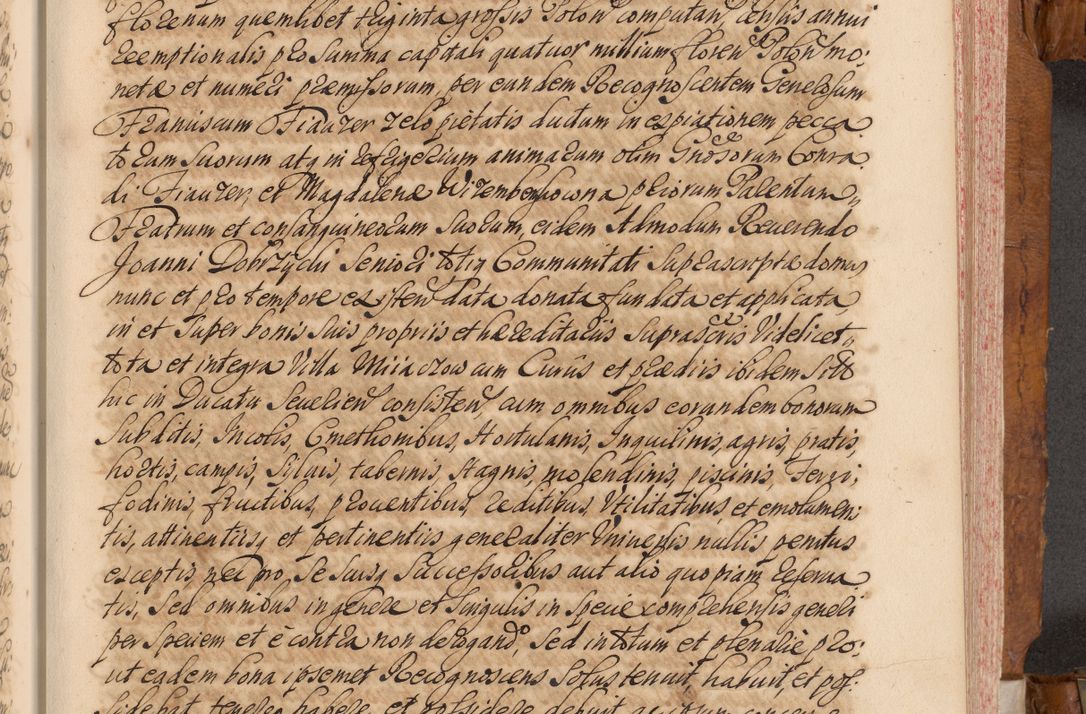 florenum quemlibet triginta grossis Polon computan census annui
reemptionalis pro summa capitali quatuor millium floren Polon mo:
netæ et numeri præmissorum, per eundem Recognoscentem Generosum
Franciscum Fiauzer zelo pietatis ductum in expiationem pecca
torum suorum atq in refrigerium animarum olim Gnosorum Conra
di Fiauzer, et Magdalenæ Wirembergowna, priorum Parentum,,
Fratrum et consanguineorum suorum, eidem Admodum Reuerendo
Joanni Dobrzycki seniori totiq Communitati suprascriptæ domus
nunc et pro tempore existen data donata fundata et applicata,
in et super bonis suis propriis et hæreditariis suprascris Videlicet,,
tota et integra Villa Miiaczow cum Curiis et prædiis ibidem sitis
hic in Ducatu Seuerien consisten cum omnibus eorundem bonorum
subditis, Incolis, Cmethonibus, Hortulanis, Inquilinis, agris, pratis,
hortis, campis, syluis, tabernis, stagnis, molendinis, piscinis, Ferri,
fodinis, fructibus, prouentibus, reditibus, Vtilitatibus et emolumen:
tis, attinentiis, et pertinentiis generaliter Vniuersis nullis penitus
exceptis, nec pro se suisq successoribus aut alio quopiam reserua
tis, sed omnibus in genere et singulis in specie comprehensis generi
per speciem et è contra non derogando, sed in totum et plenariè pro:
ut eadem bona ipsemet Recognoscens solus tenuit habuit, et pos:
sidebat tenere habere, et possidere debuit